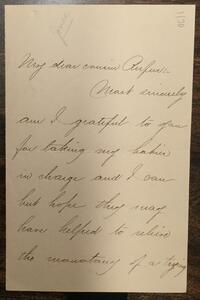 1/20
My dear cousin Rufus:-
Most sincerely
am I grateful to you
for taking my babies
in charge and I can
but hope they may
have helped to relieve
the monotony of a trying